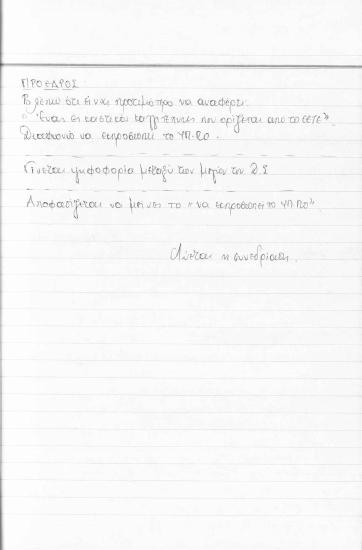 ΠΡΟΕΔΡΟΣ
Βλέπω ότι είναι προτιμότερο να αναφέρει
"Ένας εικαστικός καλλιτέχνης που ορίζεται από το ΕΕΤΕ".
Διαφωνώ να εκπροσωπεί το ΥΠ.ΠΟ.
Γίνεται ψηφοφορία μεταξύ των μελών του Δ.Σ
Αποφασίζεται να μείνει το "να εκπροσωπεί το ΥΠ.ΠΟ"
Λύεται η συνεδρίαση.